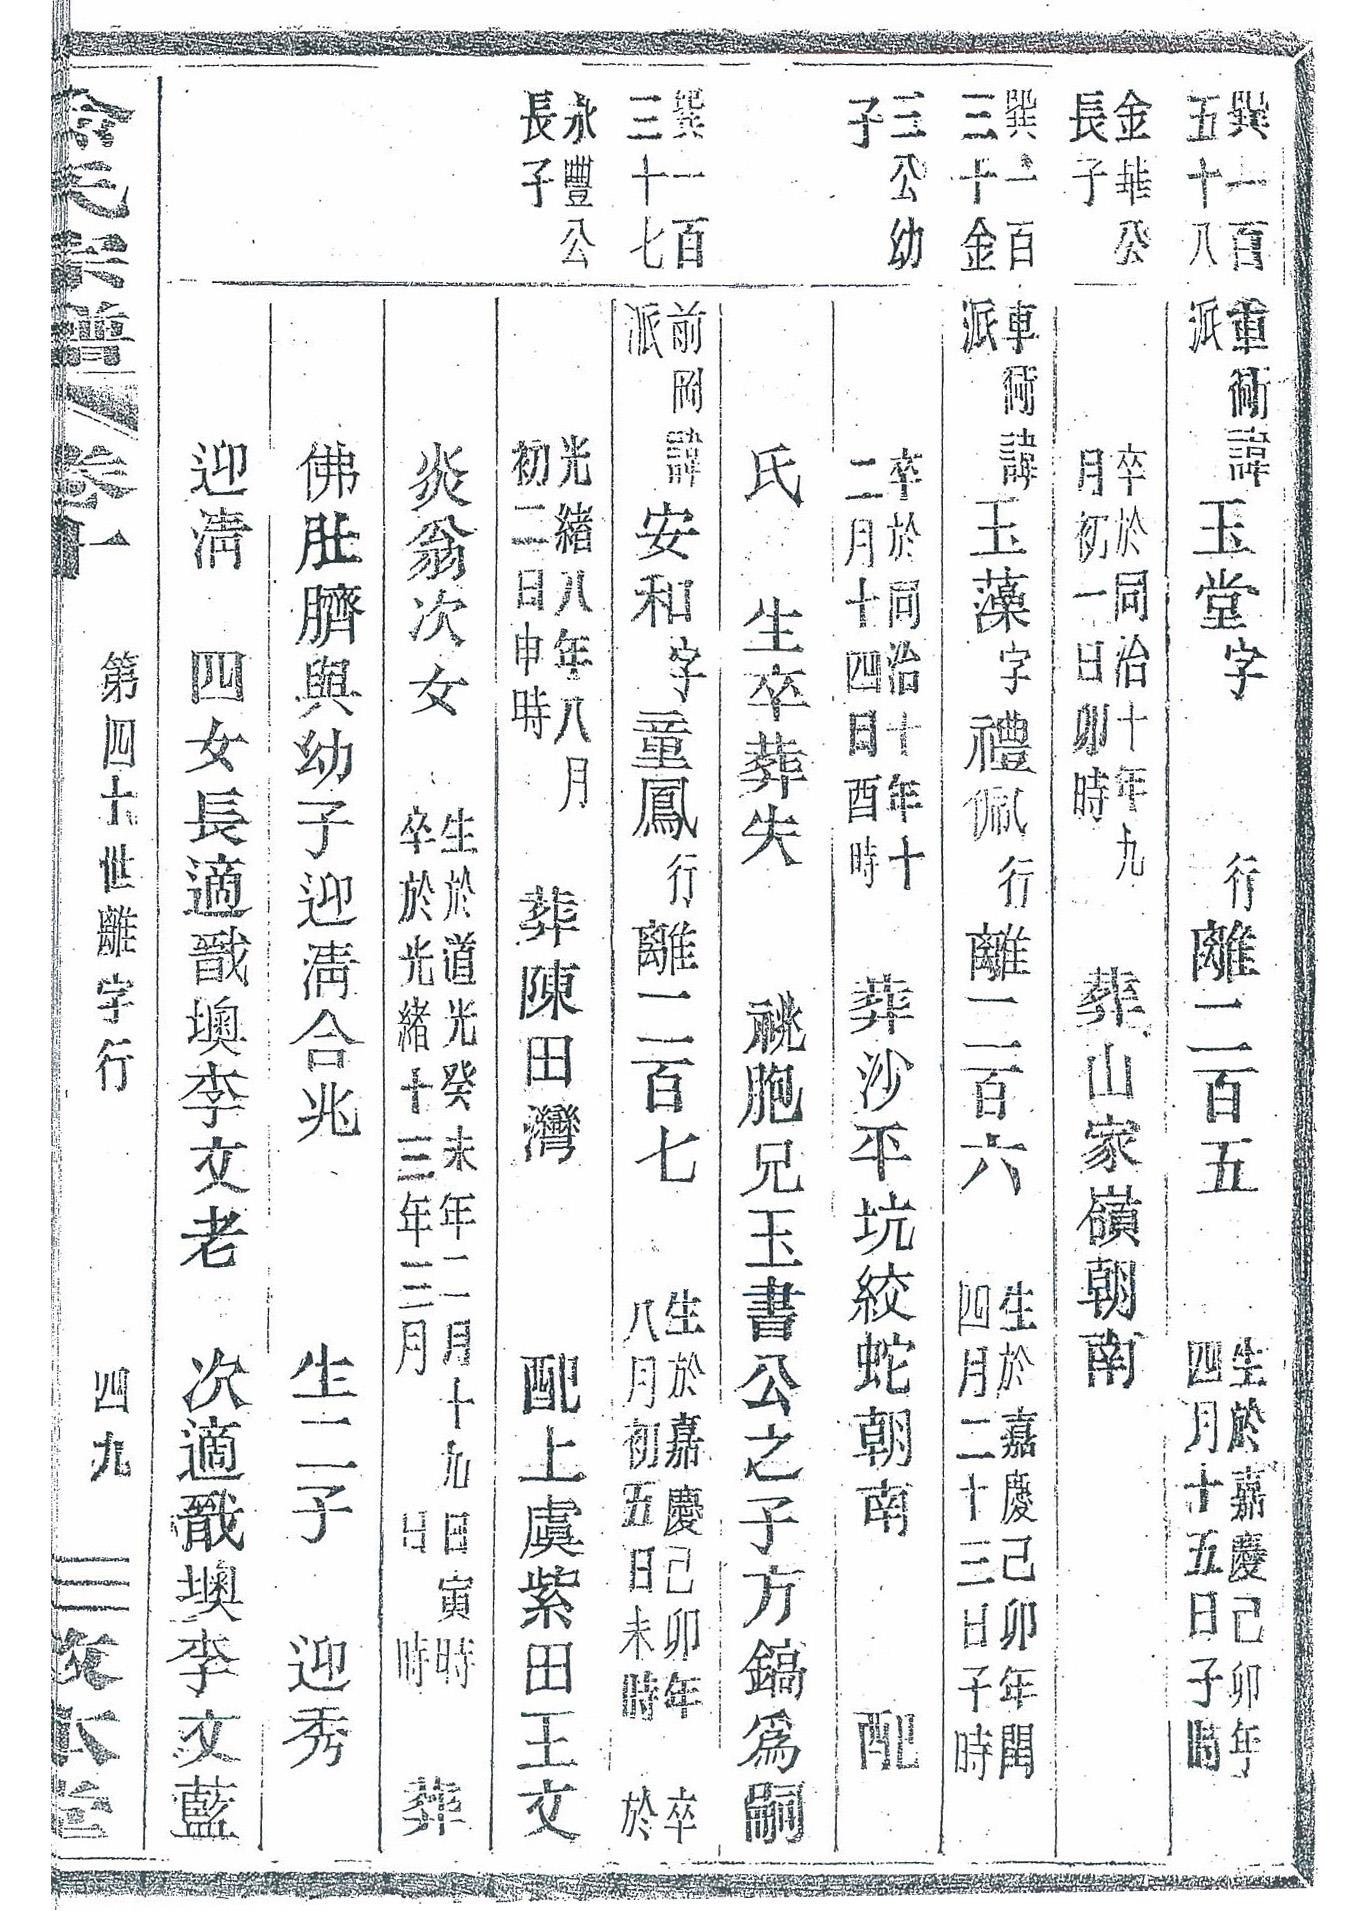 巽一百五十八金華公長子
車衕派諱玉堂字 行離二百五 生於嘉慶己卯年四月十五日子時
卒於同治十年九月初一日卯時 葬山家嶺朝南
巽一百三十金三公幼子
車衕派諱玉藻字禮佩行離二百六 生於嘉慶己卯年閏四月二十三日子時
卒於同治十年十二月十四日酉時 葬沙平坑絞蛇朝南 配
氏 生卒葬失 祧胞兄玉書公之子方鎬爲嗣
巽一百三十七永豐公長子
前岡派諱安和字童鳳行離二百七 生於嘉慶己卯年八月初五日未時 卒於
光緒八年八月初二日申時 葬陳田灣 配上虞紫田王文
炎翁次女 生於道光癸未年二月十九日寅時卒於光緒十三年三月 日 時 葬
佛肚臍與幼子迎清合兆 生二子 迎秀
迎清 四女長適戬墺李文老 次適戬墺李文藍
氏宗譜 卷十一 第四十世離字行 四九 敦本堂